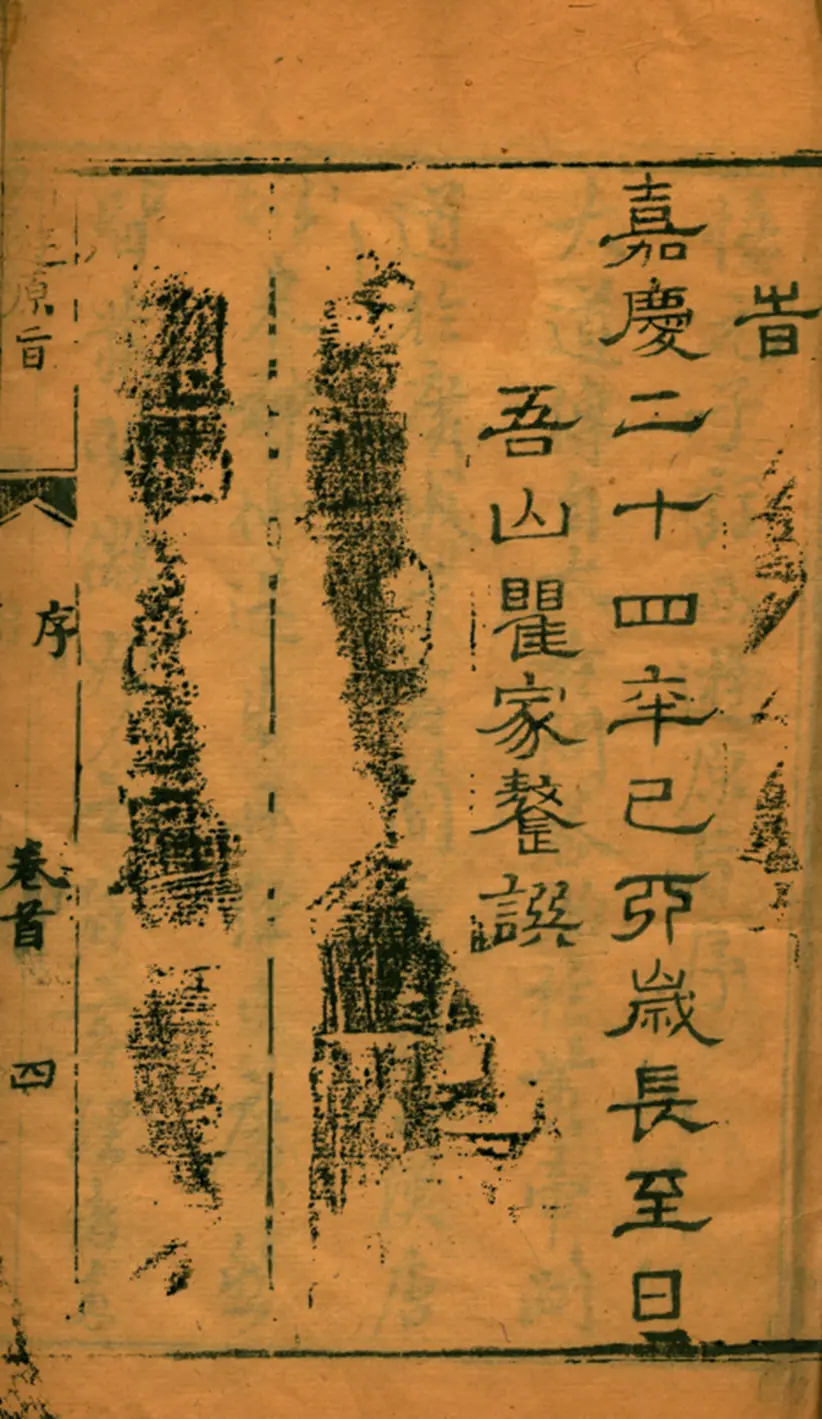 旹
嘉慶二十四年己卯歲長至日
吾山瞿家鏊譔
原旨
序
卷首
四